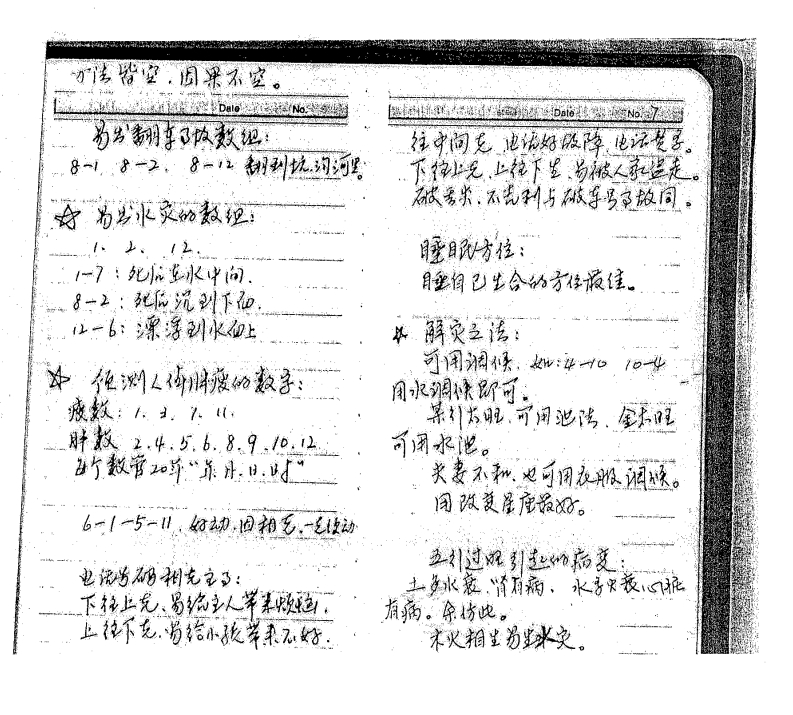 万法皆空，因果不空。
Date No.
易出翻车事故数组：
8-1 8-2、 8-12 翻到坑、沟河里
☆ 易出水灾的数组：
1、 2、 12.
1-7：死后在水中间.
8-2：死后沉到下面.
12-6：漂浮到水面上
☆ 预测人体胖瘦的数字：
瘦数：1. 3. 7. 11.
胖数 2.4.5.6.8.9.10.12
每个数管20年“年.月.日.时”
6-1-5-11、好动.因相克、一克使动
电话号码相克主事：
下往上克、易给主人带来烦恼，
上往下克、易给小孩带来不好.
Date No. 7
往中间克 电话好故障，电话
下往上克，上往下生，易被人家盗走。
破丢失、不吉利与破车号事故同。
睡眠方位：
睡自己生合的方位最佳。
☆ 解灾之法：
可用调候. 如：4-10 10-4
用水调候即可。
某行太旺，可用泄法、金太旺
可用水泄。
夫妻不和，也可用衣服调候。
用改变星座最好。
五行过旺引起的病变：
土多水衰、肾有病、水多火衰心脏
有病。余仿此。
木火相生易生火灾。